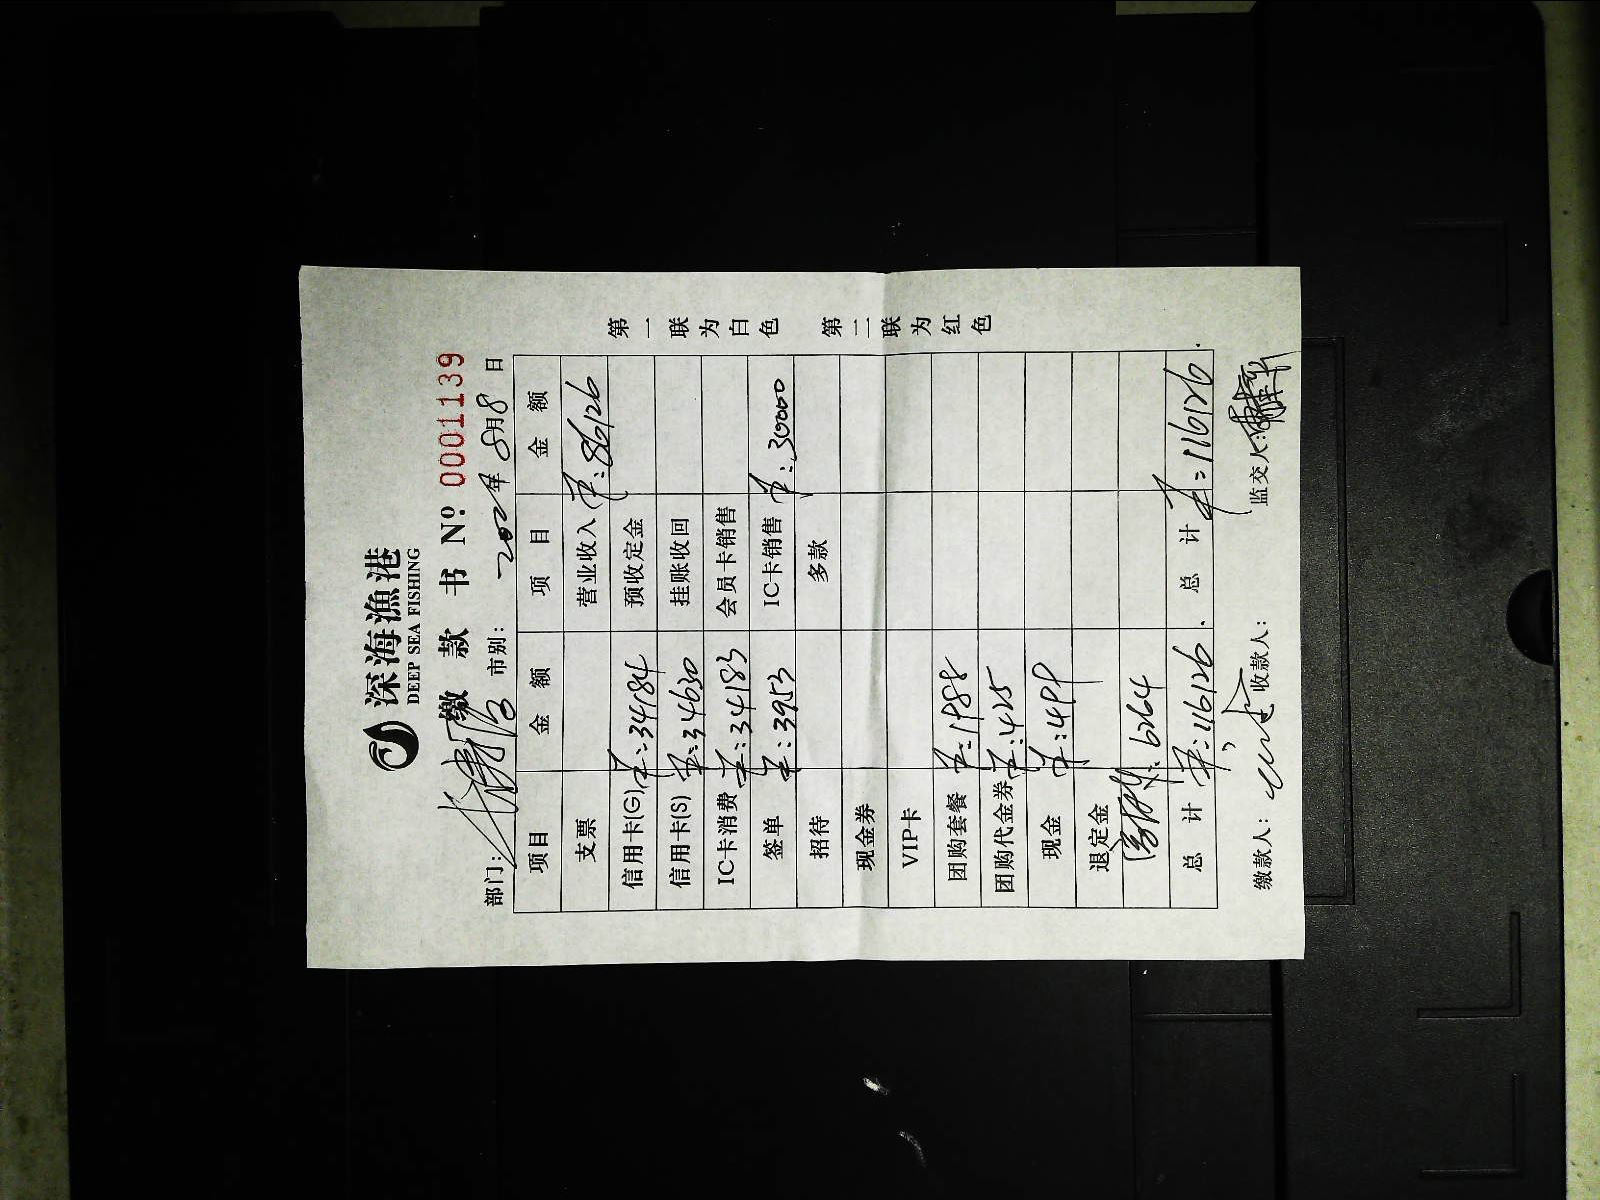 深海漁港
DEEP SEA FISHING
缴 款 书 Nº 0001139
部门: 市别: 2021年8月8日
项目 金 额 项 目 金 额
支票 营业收入 ¥:86126
信用卡(G) ¥:34484 预收定金
信用卡(S) ¥:34630 挂账收回
IC卡消费 ¥:34183 会员卡销售
签单 ¥:3953 IC卡销售 ¥:30000
招待 多款
现金券
VIP卡
团购套餐 ¥:1988
团购代金券 ¥:425
现金 ¥:499
退定金
¥:6264
总 计 ¥:116126. 总 计 ¥:116126.
缴款人: 收款人: 监交人:
第一联为白色 第二联为红色